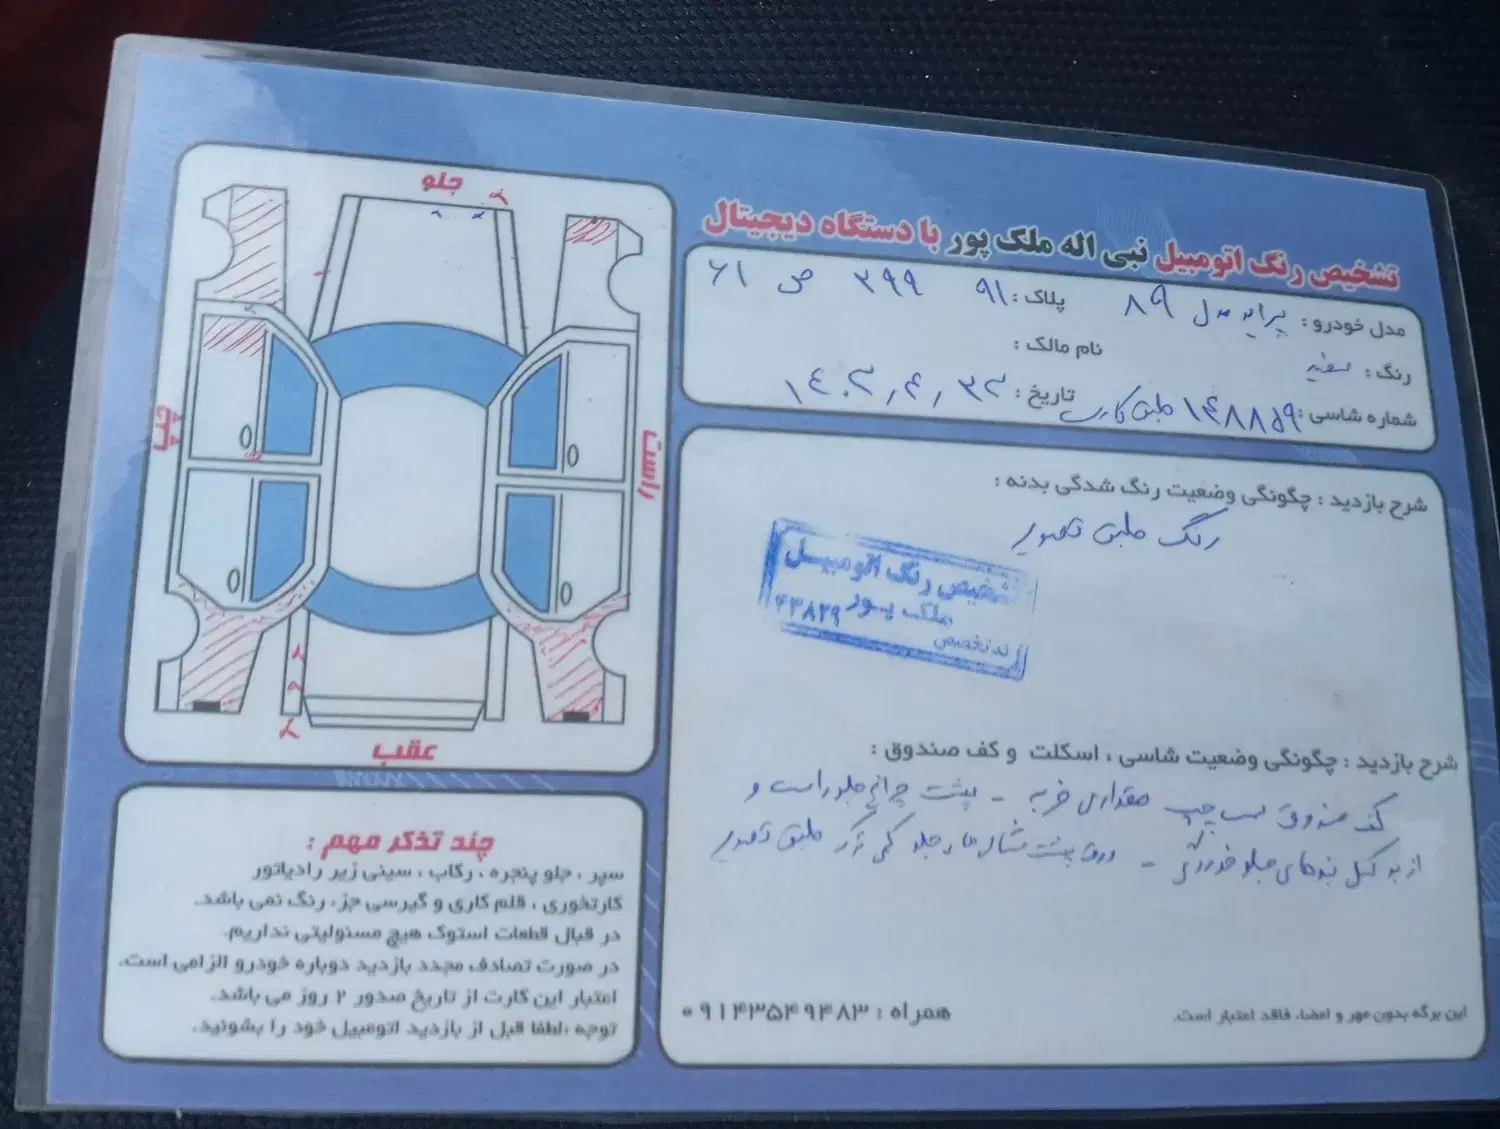 تشخیص رنگ اتومبیل نبی اله ملک پور با دستگاه دیجیتال
مدل خودرو : پراید مدل ۸۹ پلاک : ۹۱ ۳۹۹ ص ۶۱
رنگ : سفید نام مالک :
شماره شاسی : ۱۴۸۸۵۹ طبق کارت تاریخ :
شرح بازدید : چگونگی وضعیت رنگ شدگی بدنه :
رنگ طبق تصویر
تشخیص رنگ اتومبیل
ملک پور
۴۳۸۲۹
شرح بازدید : چگونگی وضعیت شاسی ، اسکلت و کف صندوق :
کف صندوق سمت چپ مقداری ضربه - پشت چراغ جلو راست و
طبق تصویر
این برگه بدون مهر و امضاء فاقد اعتبار است.
همراه : ۰۹۱۴۳۵۴۹۴۸۳
جلو
چپ
راست
عقب
چند تذکر مهم :
سپر ، جلو پنجره ، رکاب ، سینی زیر رادیاتور
کارتخوری ، قلم کاری و گیرسی جزء رنگ نمی باشد.
در قبال قطعات استوک هیچ مسئولیتی نداریم.
در صورت تصادف مجدد بازدید دوباره خودرو الزامی است.
اعتبار این کارت از تاریخ صدور ۲ روز می باشد.
توجه :لطفا قبل از بازدید اتومبیل خود را بشوئید.